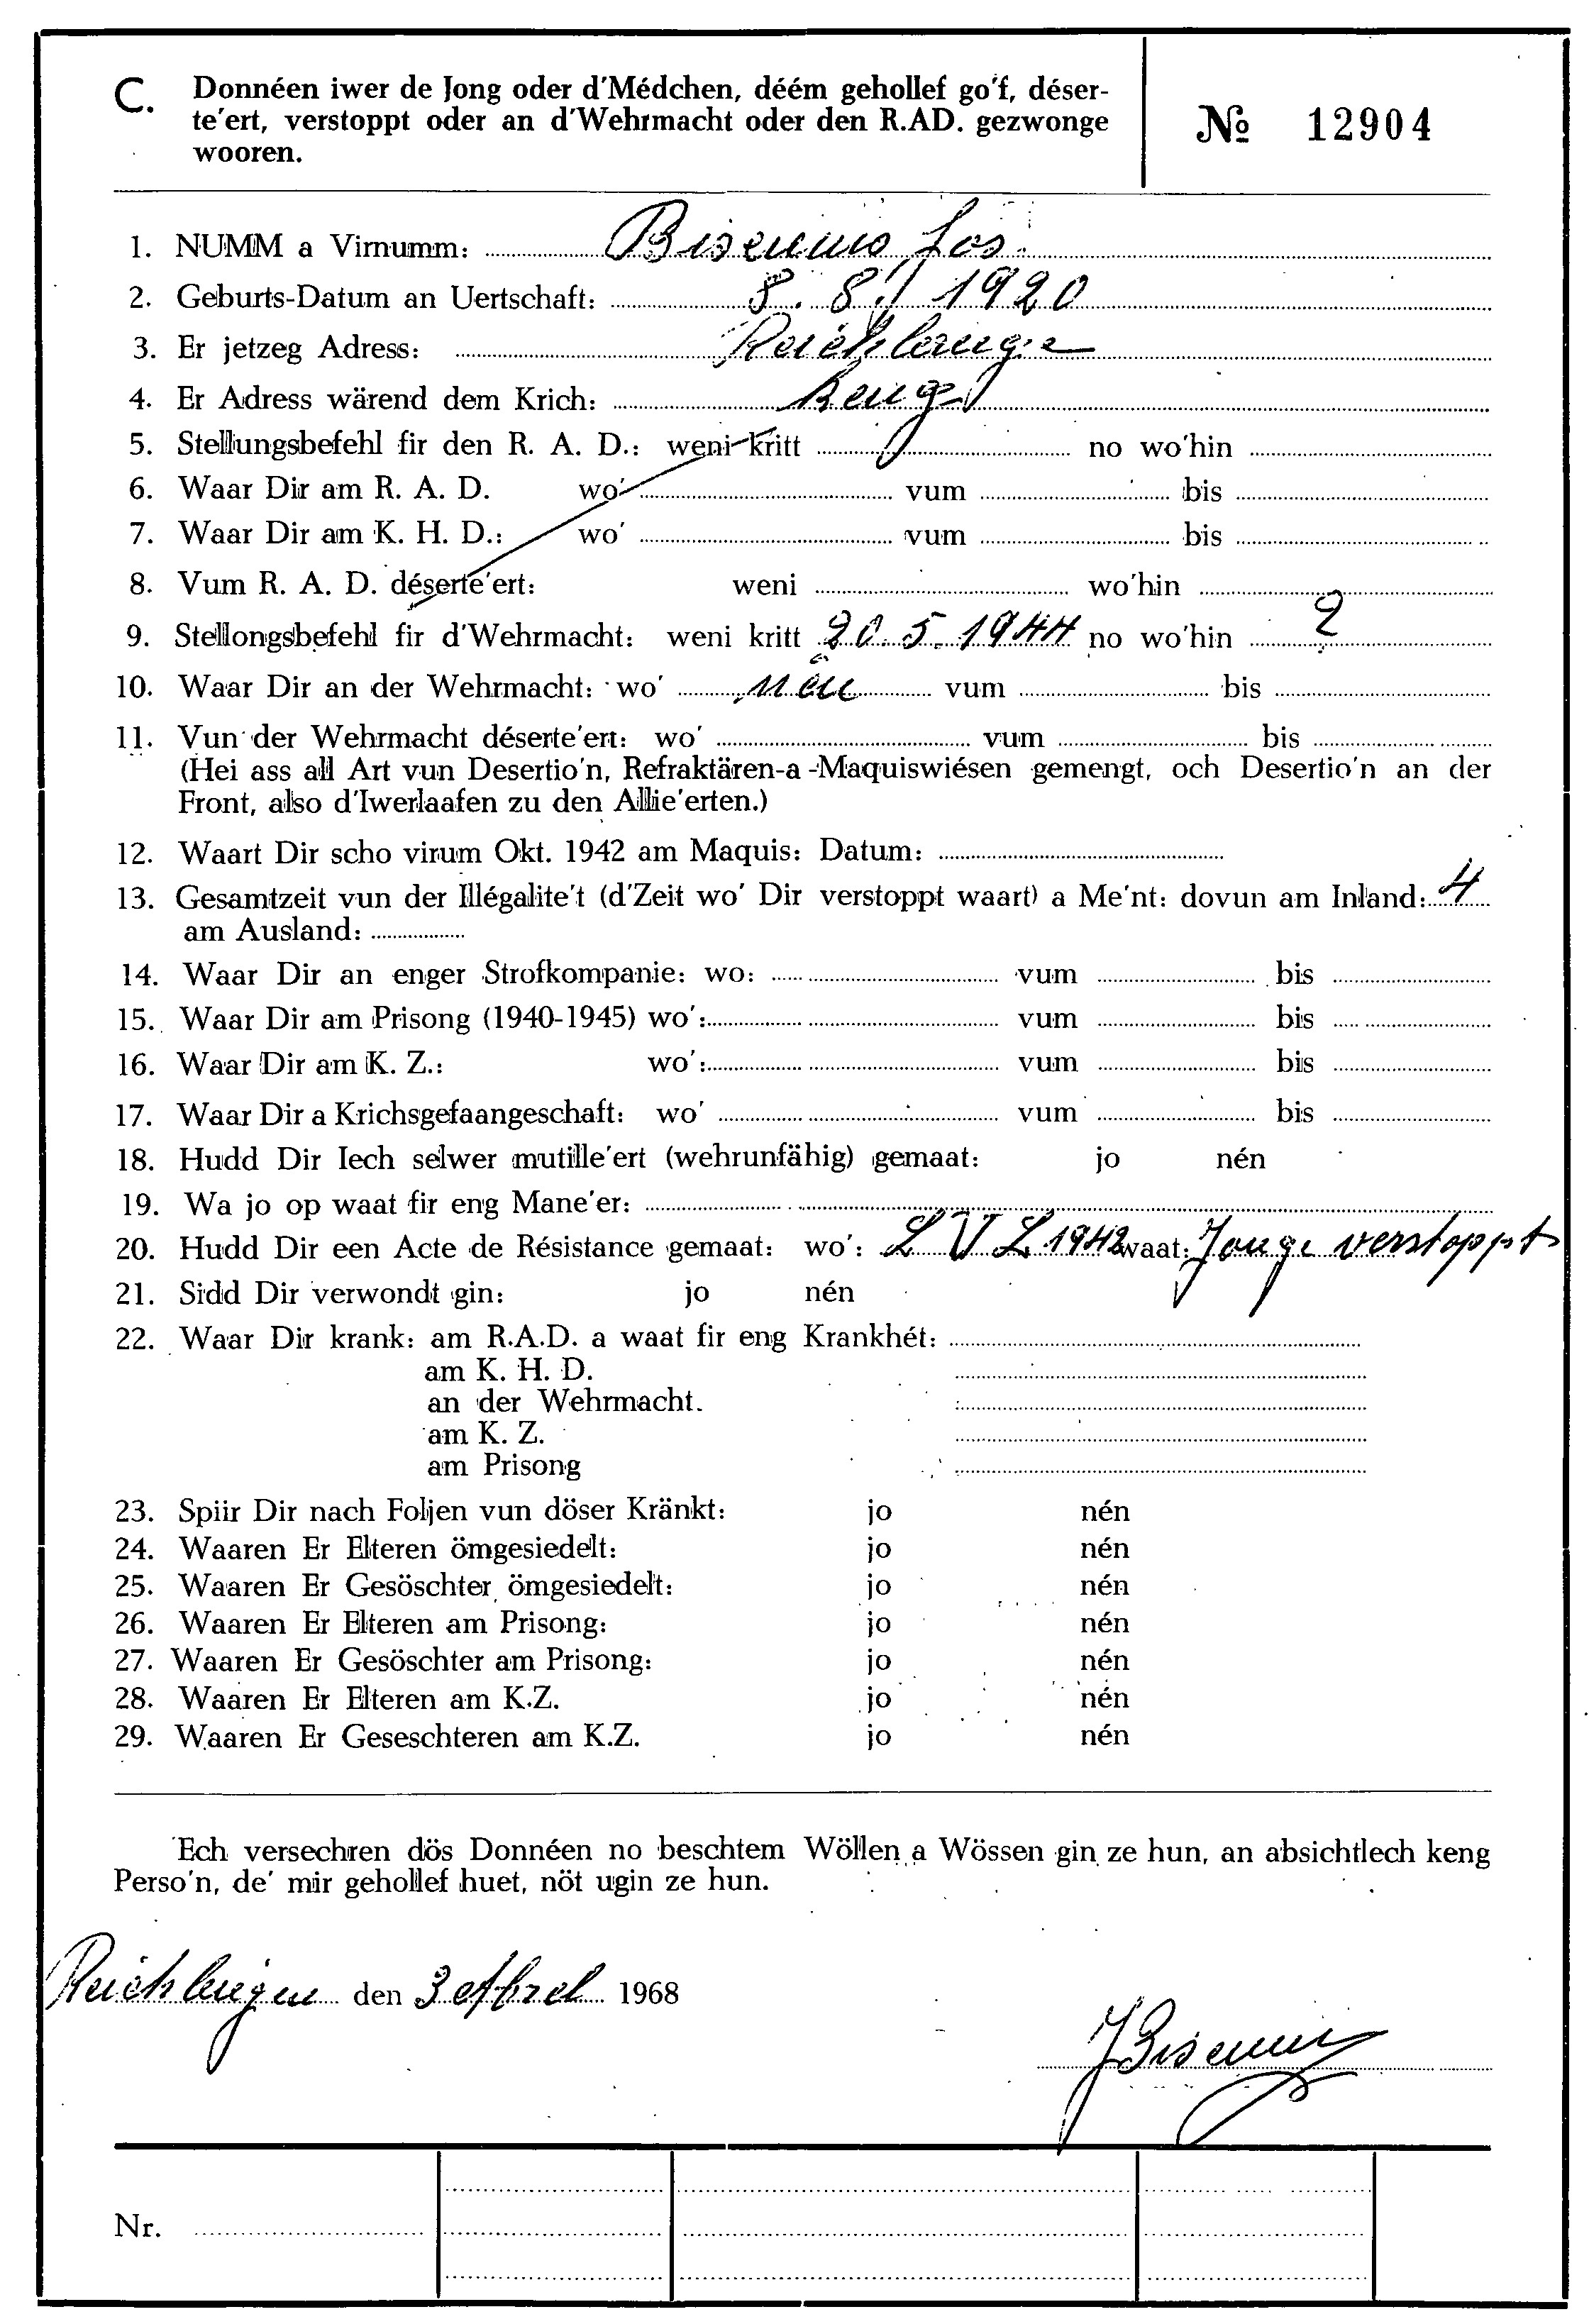 C. Donnéen iwer de Jong oder d'Médchen, déém gehollef go'f, déser-
te'ert, verstoppt oder an d'Wehrmacht oder den R.AD. gezwonge
wooren.
№ 12904
1. NUMM a Virnumm: Bisenius Jos.
2. Geburts-Datum an Uertschaft: 8. 8. 1920
3. Er jetzeg Adress: Reichlange
4. Er Adress wärend dem Krich:
5. Stellungsbefehl fir den R. A. D.: weni kritt no wo'hin
6. Waar Dir am R. A. D. wo' vum bis
7. Waar Dir am K. H. D.: wo' vum bis
8. Vum R. A. D. déserte'ert: weni wo'hin
9. Stellongsbefehl fir d'Wehrmacht: weni kritt 20. 5. 1944 no wo'hin ?
10. Waar Dir an der Wehrmacht: wo' nén vum bis
11. Vun der Wehrmacht déserte'ert: wo' vum bis
(Hei ass all Art vun Desertio'n, Refraktären-a-Maquiswiésen gemengt, och Desertio'n an der
Front, also d'Iwerlaafen zu den Allie'erten.)
12. Waart Dir scho virum Okt. 1942 am Maquis: Datum:
13. Gesamtzeit vun der Illégalite't (d'Zeit wo' Dir verstoppt waart) a Me'nt: dovun am Inland: 4
am Ausland:
14. Waar Dir an enger Strofkompanie: wo: vum bis
15. Waar Dir am Prisong (1940-1945) wo': vum bis
16. Waar Dir am K. Z.: wo': vum bis
17. Waar Dir a Krichsgefaangeschaft: wo' vum bis
18. Hudd Dir Iech selwer mutille'ert (wehrunfähig) gemaat: jo nén
19. Wa jo op waat fir eng Mane'er:
20. Hudd Dir een Acte de Résistance gemaat: wo': L V L 1942 waat: Jonge verstoppt
21. Sidd Dir verwondt gin: jo nén
22. Waar Dir krank: am R.A.D. a waat fir eng Krankhét:
am K. H. D.
an der Wehrmacht.
am K. Z.
am Prisong
23. Spiir Dir nach Foljen vun döser Kränkt: jo nén
24. Waaren Er Elteren ömgesiedelt: jo nén
25. Waaren Er Gesöschter ömgesiedelt: jo nén
26. Waaren Er Elteren am Prisong: jo nén
27. Waaren Er Gesöschter am Prisong: jo nén
28. Waaren Er Elteren am K.Z. jo nén
29. Waaren Er Geseschteren am K.Z. jo nén
Ech versechren dös Donnéen no beschtem Wöllen a Wössen gin ze hun, an absichtlech keng
Perso'n, de' mir gehollef huet, nöt ugin ze hun.
Reichlangen den 3 Abrel 1968
J Bisenius
Nr.